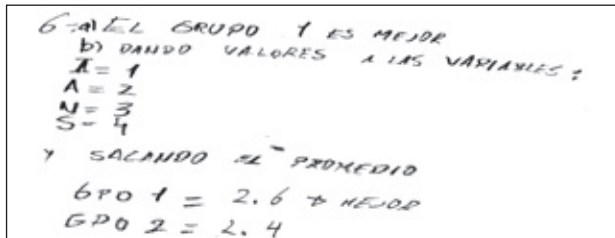 6-a) EL GRUPO 1 ES MEJOR
b) DANDO VALORES A LAS VARIABLES:
I = 1
A = 2
N = 3
S = 4
Y SACANDO EL PROMEDIO
GPO 1 = 2.6 → MEJOR
GPO 2 = 2.4